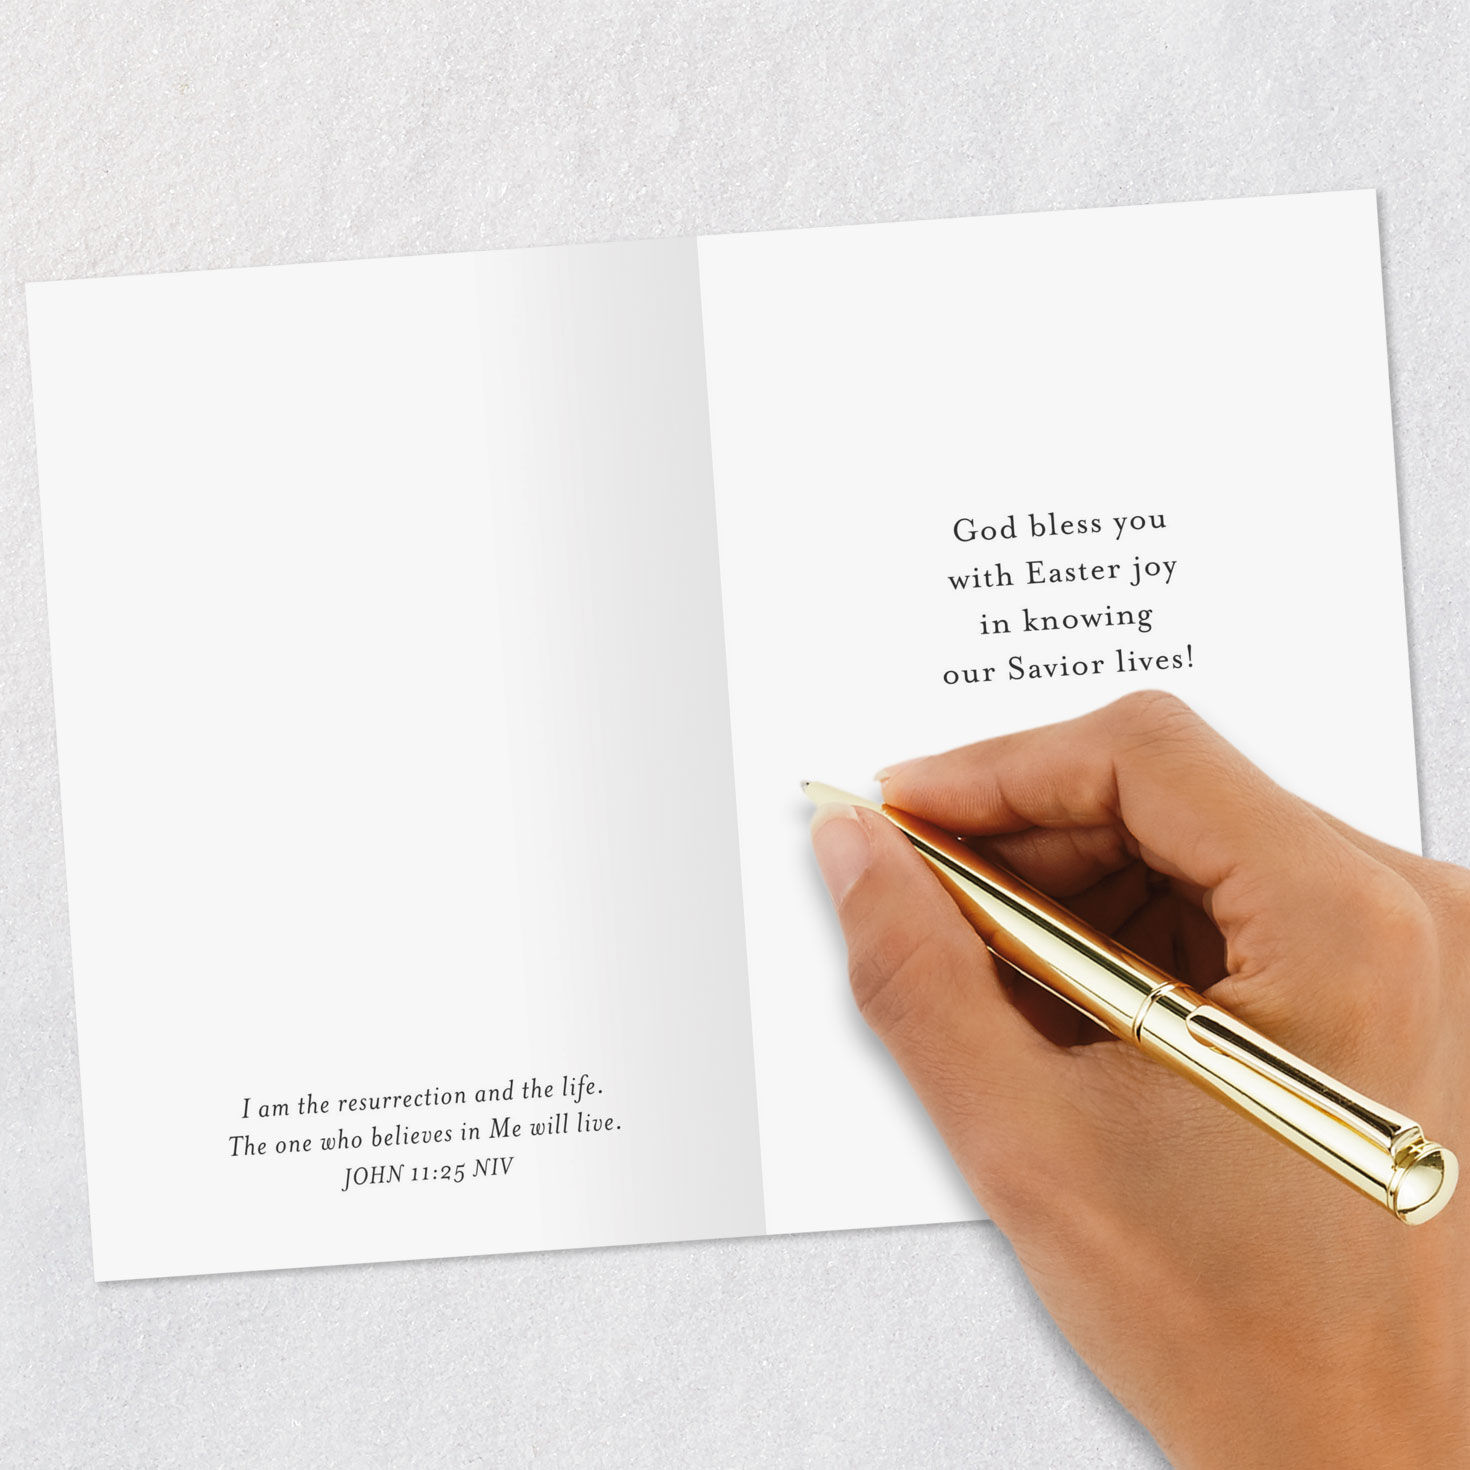 I am the resurrection and the life.
The one who believes in Me will live.
JOHN 11:25 NIV
God bless you
with Easter joy
in knowing
our Savior lives!